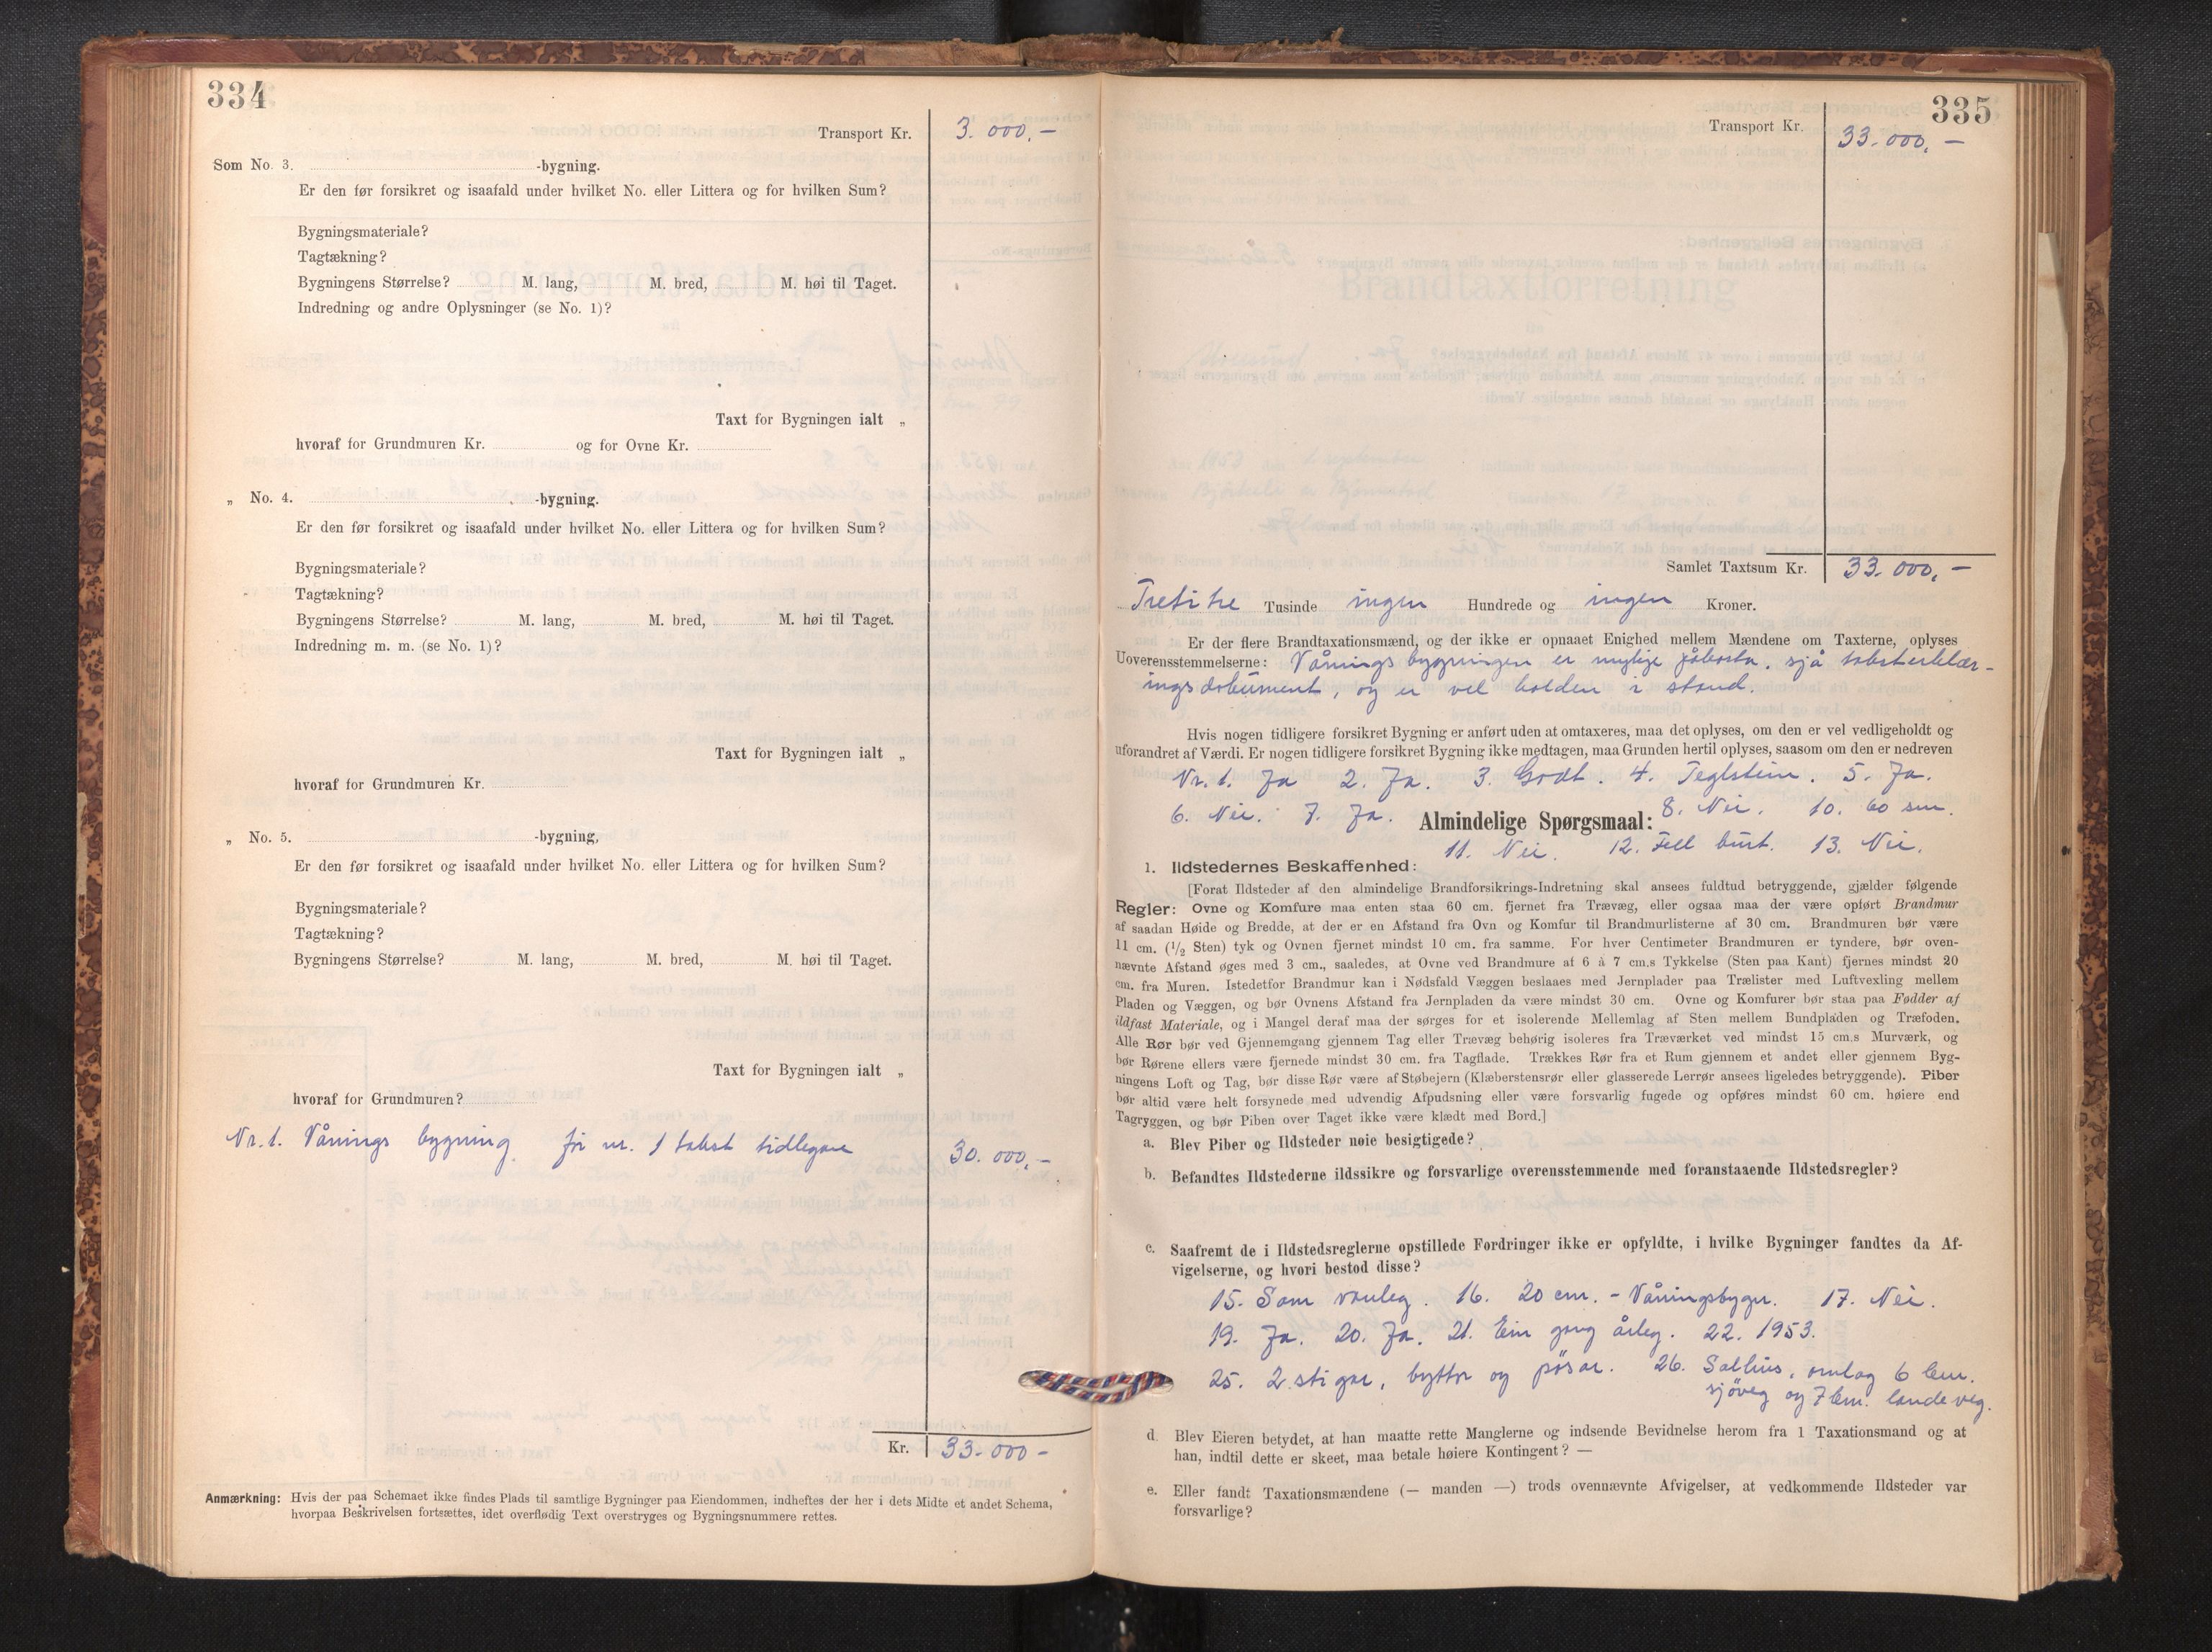 334
Transport Kr. 3.000,-
Som No. 3. -bygning.
Er den før forsikret og isaafald under hvilket No. eller Littera og for hvilken Sum?
Bygningsmateriale?
Tagtækning?
Bygningens Størrelse? M. lang, M. bred, M. høi til Taget.
Indredning og andre Oplysninger (se No. 1)?
Taxt for Bygningen ialt „
hvoraf for Grundmuren Kr. og for Ovne Kr.
„ No. 4. -bygning.
Er den før forsikret og isaafald under hvilket No. eller Littera og for hvilken Sum?
Bygningsmateriale?
Tagtækning?
Bygningens Størrelse? M. lang, M. bred, M. høi til Taget.
Indredning m. m. (se No. 1)?
Taxt for Bygningen ialt „
hvoraf for Grundmuren Kr.
„ No. 5. -bygning,
Er den før forsikret og isaafald under hvilket No. eller Littera og for hvilken Sum?
Bygningsmateriale?
Tagtækning?
Bygningens Størrelse? M. lang, M. bred, M. høi til Taget.
Taxt for Bygningen ialt „
hvoraf for Grundmuren?
Nr. 1. Vånings bygning før nr. 1 takst tidlegare 30.000,-
Kr. 33.000 -
Anmærkning: Hvis der paa Schemaet ikke findes Plads til samtlige Bygninger paa Eiendommen, indheftes der her i dets Midte et andet Schema,
hvorpaa Beskrivelsen fortsættes, idet overflødig Text overstryges og Bygningsnummere rettes.
335
Transport Kr. 33.000,-
Samlet Taxtsum Kr. 33.000,-
Tretitre Tusinde ingen Hundrede og ingen Kroner.
Er der flere Brandtaxationsmænd, og der ikke er opnaaet Enighed mellem Mændene om Taxterne, oplyses
Uoverensstemmelserne: Vånings bygningen er mykje påkosta, sjå taksterklær-
ingsdokument, og er vel holden i stand.
Hvis nogen tidligere forsikret Bygning er anført uden at omtaxeres, maa det oplyses, om den er vel vedligeholdt og
uforandret af Værdi. Er nogen tidligere forsikret Bygning ikke medtagen, maa Grunden hertil oplyses, saasom om den er nedreven
Nr. 1. Ja 2. Ja. 3. Godt. 4. Teglstein. 5. Ja.
6. Nei. 7. Ja. Almindelige Spørgsmaal: 8. Nei. 10. 60 sm.
11. Nei. 12. Fell burt. 13. Nei.
1. Ildstedernes Beskaffenhed:
[Forat Ildsteder af den almindelige Brandforsikrings-Indretning skal ansees fuldtud betryggende, gjælder følgende
Regler: Ovne og Komfure maa enten staa 60 cm. fjernet fra Trævæg, eller ogsaa maa der være opført Brandmur
af saadan Høide og Bredde, at der er en Afstand fra Ovn og Komfur til Brandmurlisterne af 30 cm. Brandmuren bør være
11 cm. (1/2 Sten) tyk og Ovnen fjernet mindst 10 cm. fra samme. For hver Centimeter Brandmuren er tyndere, bør oven-
nævnte Afstand øges med 3 cm., saaledes, at Ovne ved Brandmure af 6 à 7 cm.s Tykkelse (Sten paa Kant) fjernes mindst 20
cm. fra Muren. Istedetfor Brandmur kan i Nødsfald Væggen beslaaes med Jernplader paa Trælister med Luftvexling mellem
Pladen og Væggen, og bør Ovnens Afstand fra Jernpladen da være mindst 30 cm. Ovne og Komfurer bør staa paa Fødder af
ildfast Materiale, og i Mangel deraf maa der sørges for et isolerende Mellemlag af Sten mellem Bundpladen og Træfoden.
Alle Rør bør ved Gjennemgang gjennem Tag eller Trævæg behørig isoleres fra Træværket ved mindst 15 cm.s Murværk, og
bør Rørene ellers være fjernede mindst 30 cm. fra Tagflade. Trækkes Rør fra et Rum gjennem et andet eller gjennem Byg-
ningens Loft og Tag, bør disse Rør være af Støbejern (Klæberstensrør eller glasserede Lerrør ansees ligeledes betryggende). Piber
bør altid være helt forsynede med udvendig Afpudsning eller være forsvarlig fugede og opføres mindst 60 cm. høiere end
Tagryggen, og bør Piben over Taget ikke være klædt med Bord.]
a. Blev Piber og Ildsteder nøie besigtigede?
b. Befandtes Ildstederne ildssikre og forsvarlige overensstemmende med foranstaaende Ildstedsregler?
c. Saafremt de i Ildstedsreglerne opstillede Fordringer ikke er opfyldte, i hvilke Bygninger fandtes da Af-
vigelserne, og hvori bestod disse?
15. Som vanleg. 16. 20 cm. - Våningsbygn. 17. Nei.
19. Ja. 20. Ja. 21. Ein gong årleg. 22. 1953.
25. 2 stigar, byttor og pøsar. 26. Salhus, omlag 6 km.
sjøveg og 7 km. landeveg.
d. Blev Eieren betydet, at han maatte rette Manglerne og indsende Bevidnelse herom fra 1 Taxationsmand og at
han, indtil dette er skeet, maa betale høiere Kontingent? —
e. Eller fandt Taxationsmændene (— manden —) trods ovennævnte Afvigelser, at vedkommende Ildsteder var
forsvarlige?